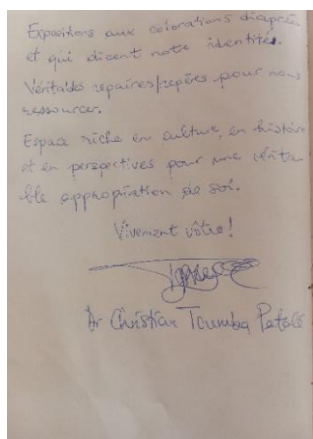 Expositions aux colorations diaprées
et qui disent notre identité.
Véritables repaires/repères pour nous
ressourcer.
Espace riche en culture, en histoire
et en perspectives pour une vérita
ble appropriation de soi.
Vivement vôtre!
Dr Christian Toumba Patalé